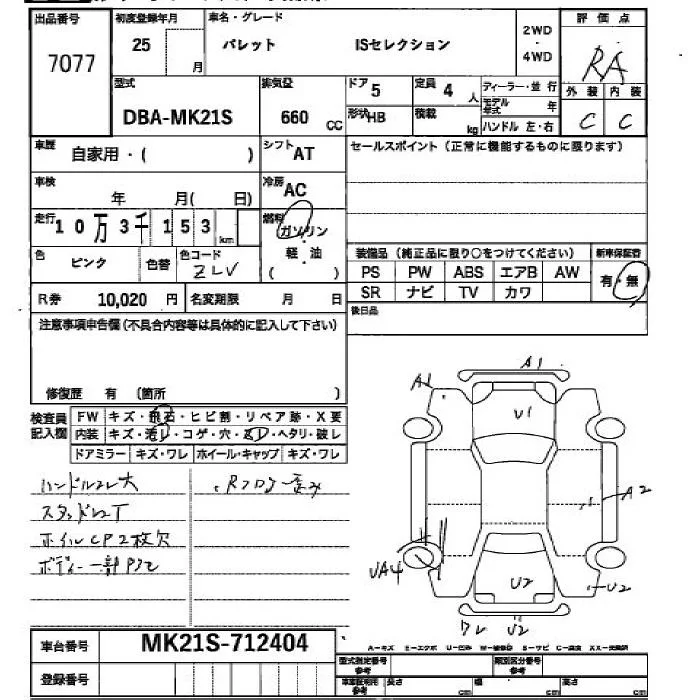 出品番号 初度登録年月 車名・グレード 2WD・4WD 評価点
7077 25 月 パレット ISセレクション RA
型式 排気量 ドア 5 定員 4 人 ディーラー・並行 外装 内装
DBA-MK21S 660 CC 形状 HB 積載 kg モデル年式 年 C C
ハンドル 左・右
車歴 自家用・( ) シフト AT セールスポイント(正常に機能するものに限ります)
車検 年 月( 日) 冷房 AC
走行 10万3千153km 燃料 ガソリン・軽油 ( )
色 ピンク 色替 色コード ZLV
装備品(純正品に限り○をつけてください) 新車保証書
PS PW ABS エアB AW 有・無
SR ナビ TV カワ
R券 10,020 円 名変期限 月 日
後日品
注意事項申告欄(不具合内容等は具体的に記入して下さい)
修復歴 有 (箇所 )
検査員記入欄 FW キズ・飛石・ヒビ割・リペア跡・X要
内装 キズ・汚レ・コゲ・穴・スレ・ヘタリ・破レ
ドアミラー キズ・ワレ ホイール・キャップ キズ・ワレ
ハンドルスレ大
ホイルCP2枚欠
A1
A1
U1
A2
UA4
U2
U2
ワレ U2
A-キズ E-エクボ U-凹み W-補修跡 S-サビ C-腐食 XX-交換済
車台番号 MK21S-712404
登録番号
型式指定番号 参考 類別区分番号 参考
車車証明用 参考 長さ cm 幅 cm 高さ cm